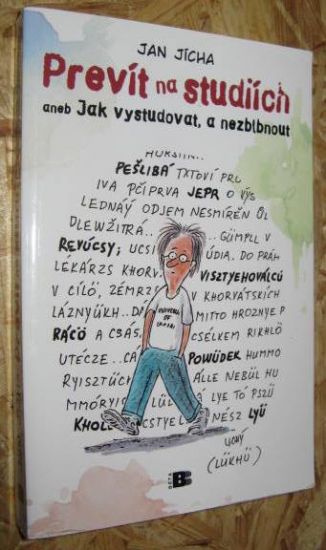 JAN JÍCHA
Prevít na studiích
aneb Jak vystudovat, a nezblbnout
PEŠLIBÁ TXTOVÍ PRU
IVA PČÍPRVA JEPR O VÝS
LEDNÁÝ ODJEM NESMÍRĚN ŮL
DLEWŽITRA.. ..GÜMPLL V
REVÚCSY; UCSI ÚDIA. DO PRÁH
LÉKÁRZS KHORV VISZTYEHOVÁLCÚ
V CÍLÓ, ZÉMRZS V KHORVÁTSKÍCH
LÁZNYÜKH..DÁ MITTO HROZNYE P
RÁCÓ A CSÁS. CSÉLKEM RIKHLÖ
UTECZE...CÁ POWÜDEK HUMMO
RYISZTÜCH ÁLLE NEBÜL HU
MMÓRYI LÜL Á LYE TÓ PSZÜ
KHOL CSTYEL NÉSZ LYÜ
(LÜKHÜ)